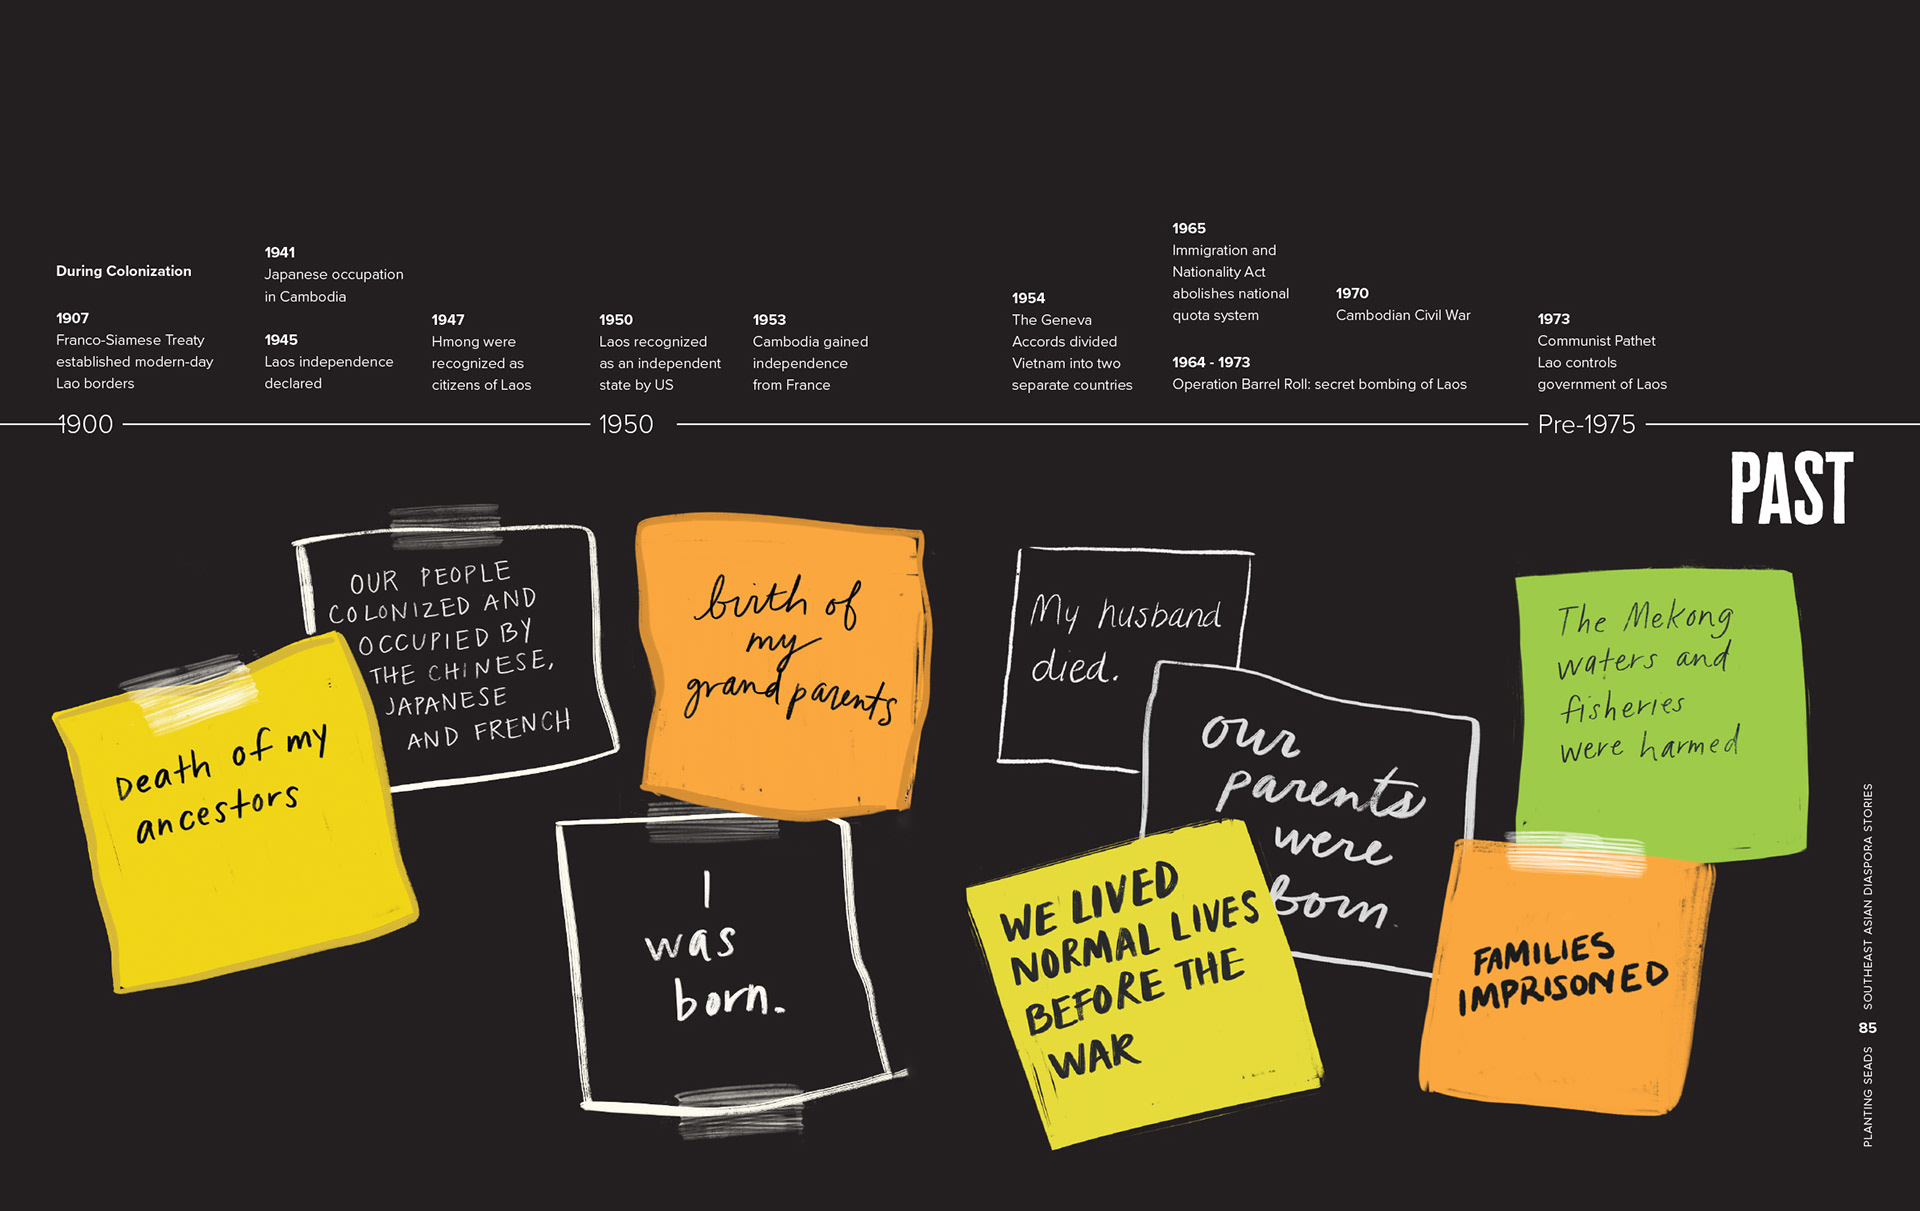 During Colonization
1907
Franco-Siamese Treaty
established modern-day
Lao borders
1941
Japanese occupation
in Cambodia
1945
Laos independence
declared
1947
Hmong were
recognized as
citizens of Laos
1950
Laos recognized
as an independent
state by US
1953
Cambodia gained
independence
from France
1954
The Geneva
Accords divided
Vietnam into two
separate countries
1965
Immigration and
Nationality Act
abolishes national
quota system
1964 - 1973
Operation Barrel Roll: secret bombing of Laos
1970
Cambodian Civil War
1973
Communist Pathet
Lao controls
government of Laos
1900
1950
Pre-1975
PAST
Death of my
ancestors
OUR PEOPLE
COLONIZED AND
OCCUPIED BY
THE CHINESE,
JAPANESE
AND FRENCH
birth of
my
grandparents
I
was
born.
My husband
died.
our
parents
were
born.
WE LIVED
NORMAL LIVES
BEFORE THE
WAR
The Mekong
waters and
fisheries
were harmed
FAMILIES
IMPRISONED
PLANTING SEADS 85 SOUTHEAST ASIAN DIASPORA STORIES